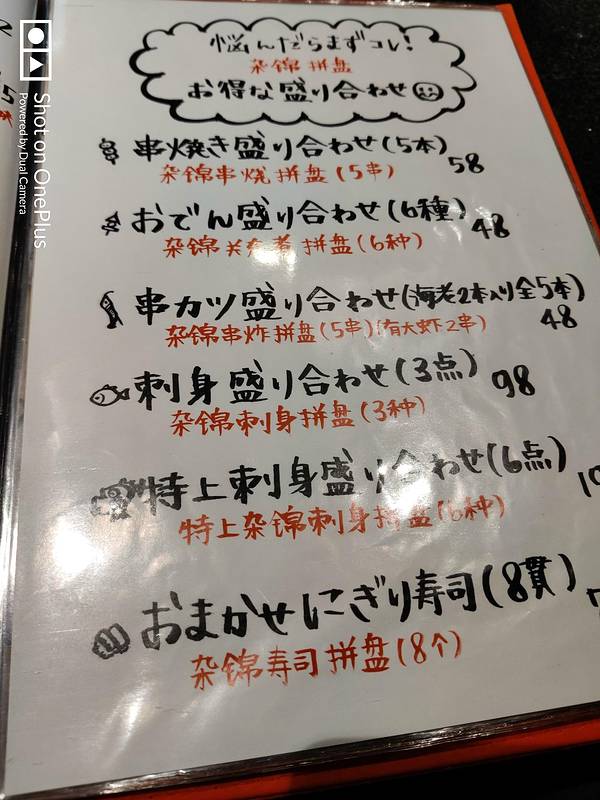 悩んだらまずコレ!
杂锦拼盘
お得な盛り合わせ
串焼き盛り合わせ(5本) 58
杂锦串烧拼盘(5串)
おでん盛り合わせ(6種) 48
杂锦关东煮拼盘(6种)
串カツ盛り合わせ(海老2本入り全5本) 48
杂锦串炸拼盘(5串)(有大虾2串)
刺身盛り合わせ(3点) 98
杂锦刺身拼盘(3种)
特上刺身盛り合わせ(6点)
特上杂锦刺身拼盘(6种)
おまかせにぎり寿司(8貫)
杂锦寿司拼盘(8个)
Shot on OnePlus
Powered by Dual Camera